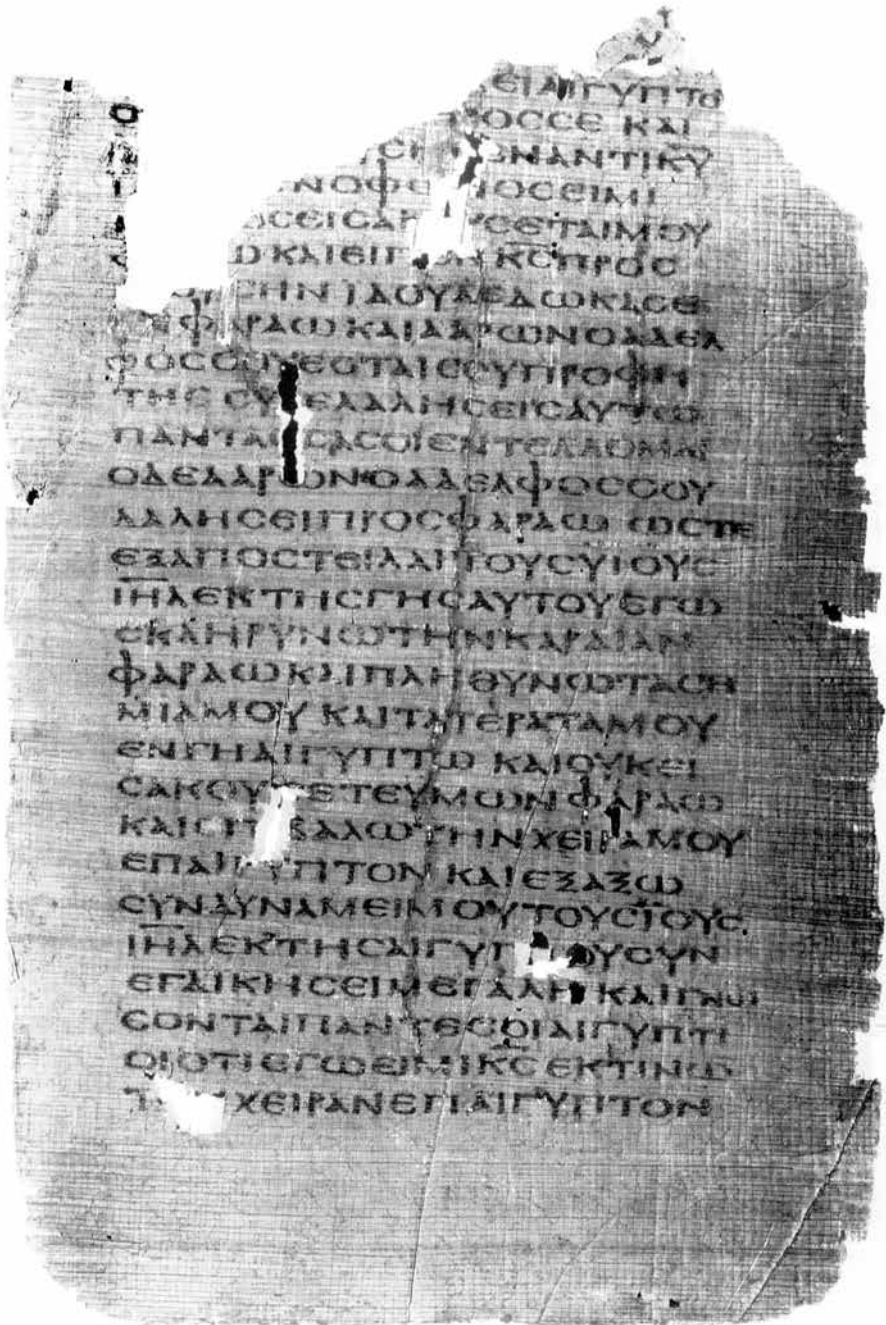 ΕΙΑΙΓΥΠΤΟ
ΟϹϹΕ ΚΑΙ
ΕΝΑΝΤΙΚΥ
ΝΟΦΩ ΟϹΕΙΜΙ
ΩϹΕΙϹΑΚ ϹΕΤΑΙΜΟΥ
Ω ΚΑΙΕΙΠ Κ̅Ϲ̅ΠΡΟϹ
ϹΗΝ ΙΔΟΥΔΕΔΩΚΑϹΕ
ΦΑΡΑΩ ΚΑΙΑΑΡΩΝΟΑΔΕΛ
ΦΟϹϹΟΥΕϹΤΑΙϹΟΥΠΡΟΦΗ
ΤΗϹ ϹΥ ΕΛΑΛΗϹΕΙϹΑΥΤΩ
ΠΑΝΤΑΟϹΑϹΟΙΕΝΤΕΛΛΟΜΑΙ
ΟΔΕΑΑΡΩΝΟΑΔΕΛΦΟϹϹΟΥ
ΛΑΛΗϹΕΙΠΡΟϹΦΑΡΑΩ ΩϹΤΕ
ΕΞΑΠΟϹΤΕΙΛΑΙΤΟΥϹΥΙΟΥϹ
Ι̅Η̅Λ̅ΕΚΤΗϹΓΗϹΑΥΤΟΥΕΓΩ
ϹΚΛΗΡΥΝΩΤΗΝΚΑΡΔΙΑΝ
ΦΑΡΑΩΚΑΙΠΛΗΘΥΝΩΤΑϹΗ
ΜΙΑΜΟΥ ΚΑΙΤΑΤΕΡΑΤΑΜΟΥ
ΕΝΓΗΑΙΓΥΠΤΩ ΚΑΙΟΥΚΕΙ
ϹΑΚΟΥϹΕΤΕΥΜΩΝΦΑΡΑΩ
ΚΑΙΕΠΙΒΑΛΩΤΗΝΧΕΙΡΑΜΟΥ
ΕΠΑΙΓΥΠΤΟΝ ΚΑΙΕΞΑΞΩ
ϹΥΝΔΥΝΑΜΕΙΜΟΥΤΟΥϹΪΟΥϹ
Ι̅Η̅Λ̅ΕΚΤΗϹΑΙΓΥΠΤΟΥϹΥΝ
ΕΓΔΙΚΗϹΕΙΜΕΓΑΛΗ ΚΑΙΓΝΩ
ϹΟΝΤΑΙΠΑΝΤΕϹΟΙΑΙΓΥΠΤΙ
ΟΙΟΤΙΕΓΩΕΙΜΙΚ̅Ϲ̅ ΕΚΤΙΝΩ
ΤΗΝΧΕΙΡΑΝΕΠΑΙΓΥΠΤΟΝ